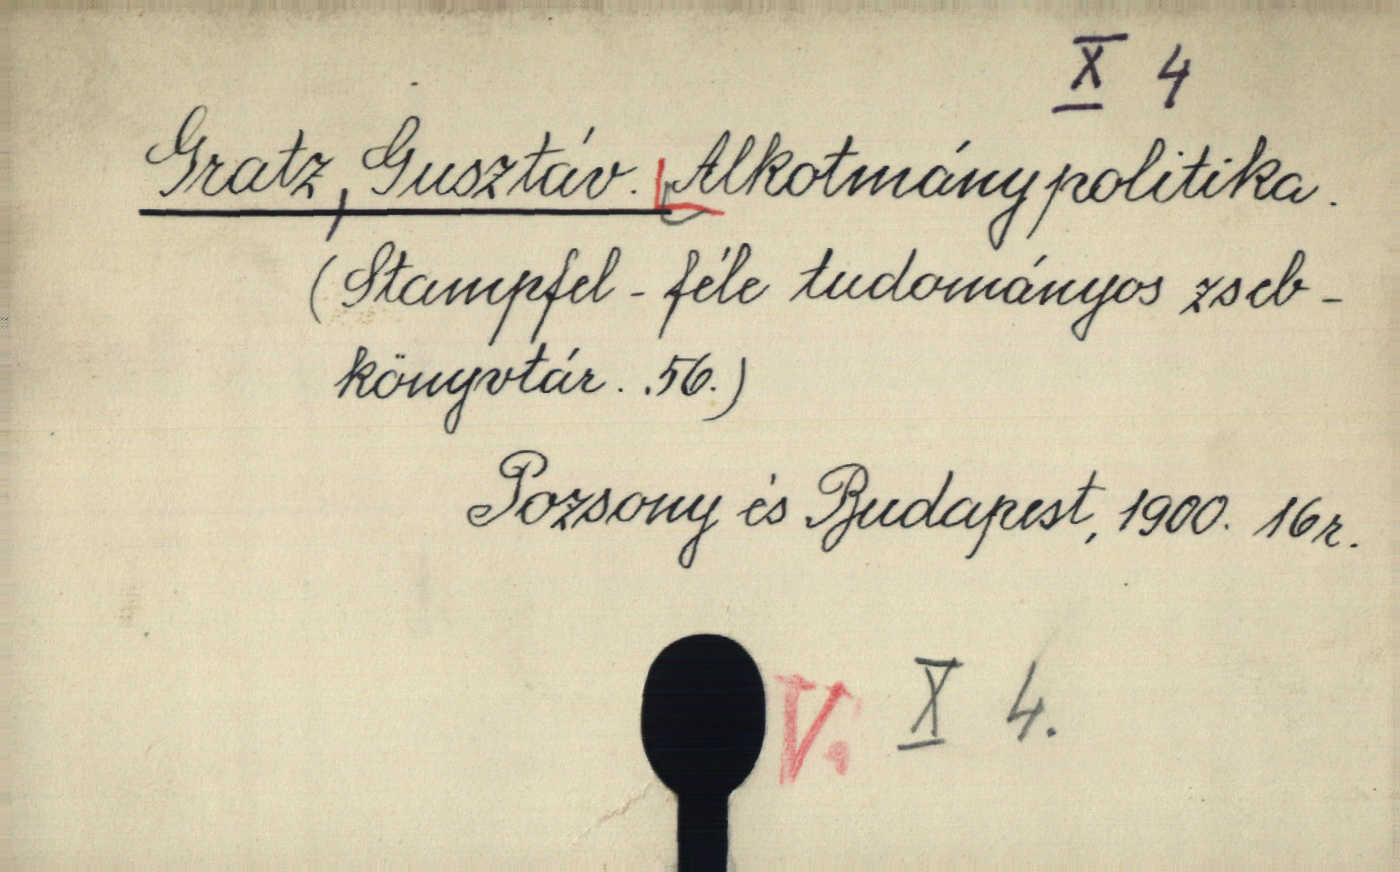 X 4
Gratz, Gusztáv. Alkotmánypolitika.
(Stampfel-féle tudományos zseb-
könyvtár. .56.)
Pozsony és Budapest, 1900. 16r.
V. X 4.